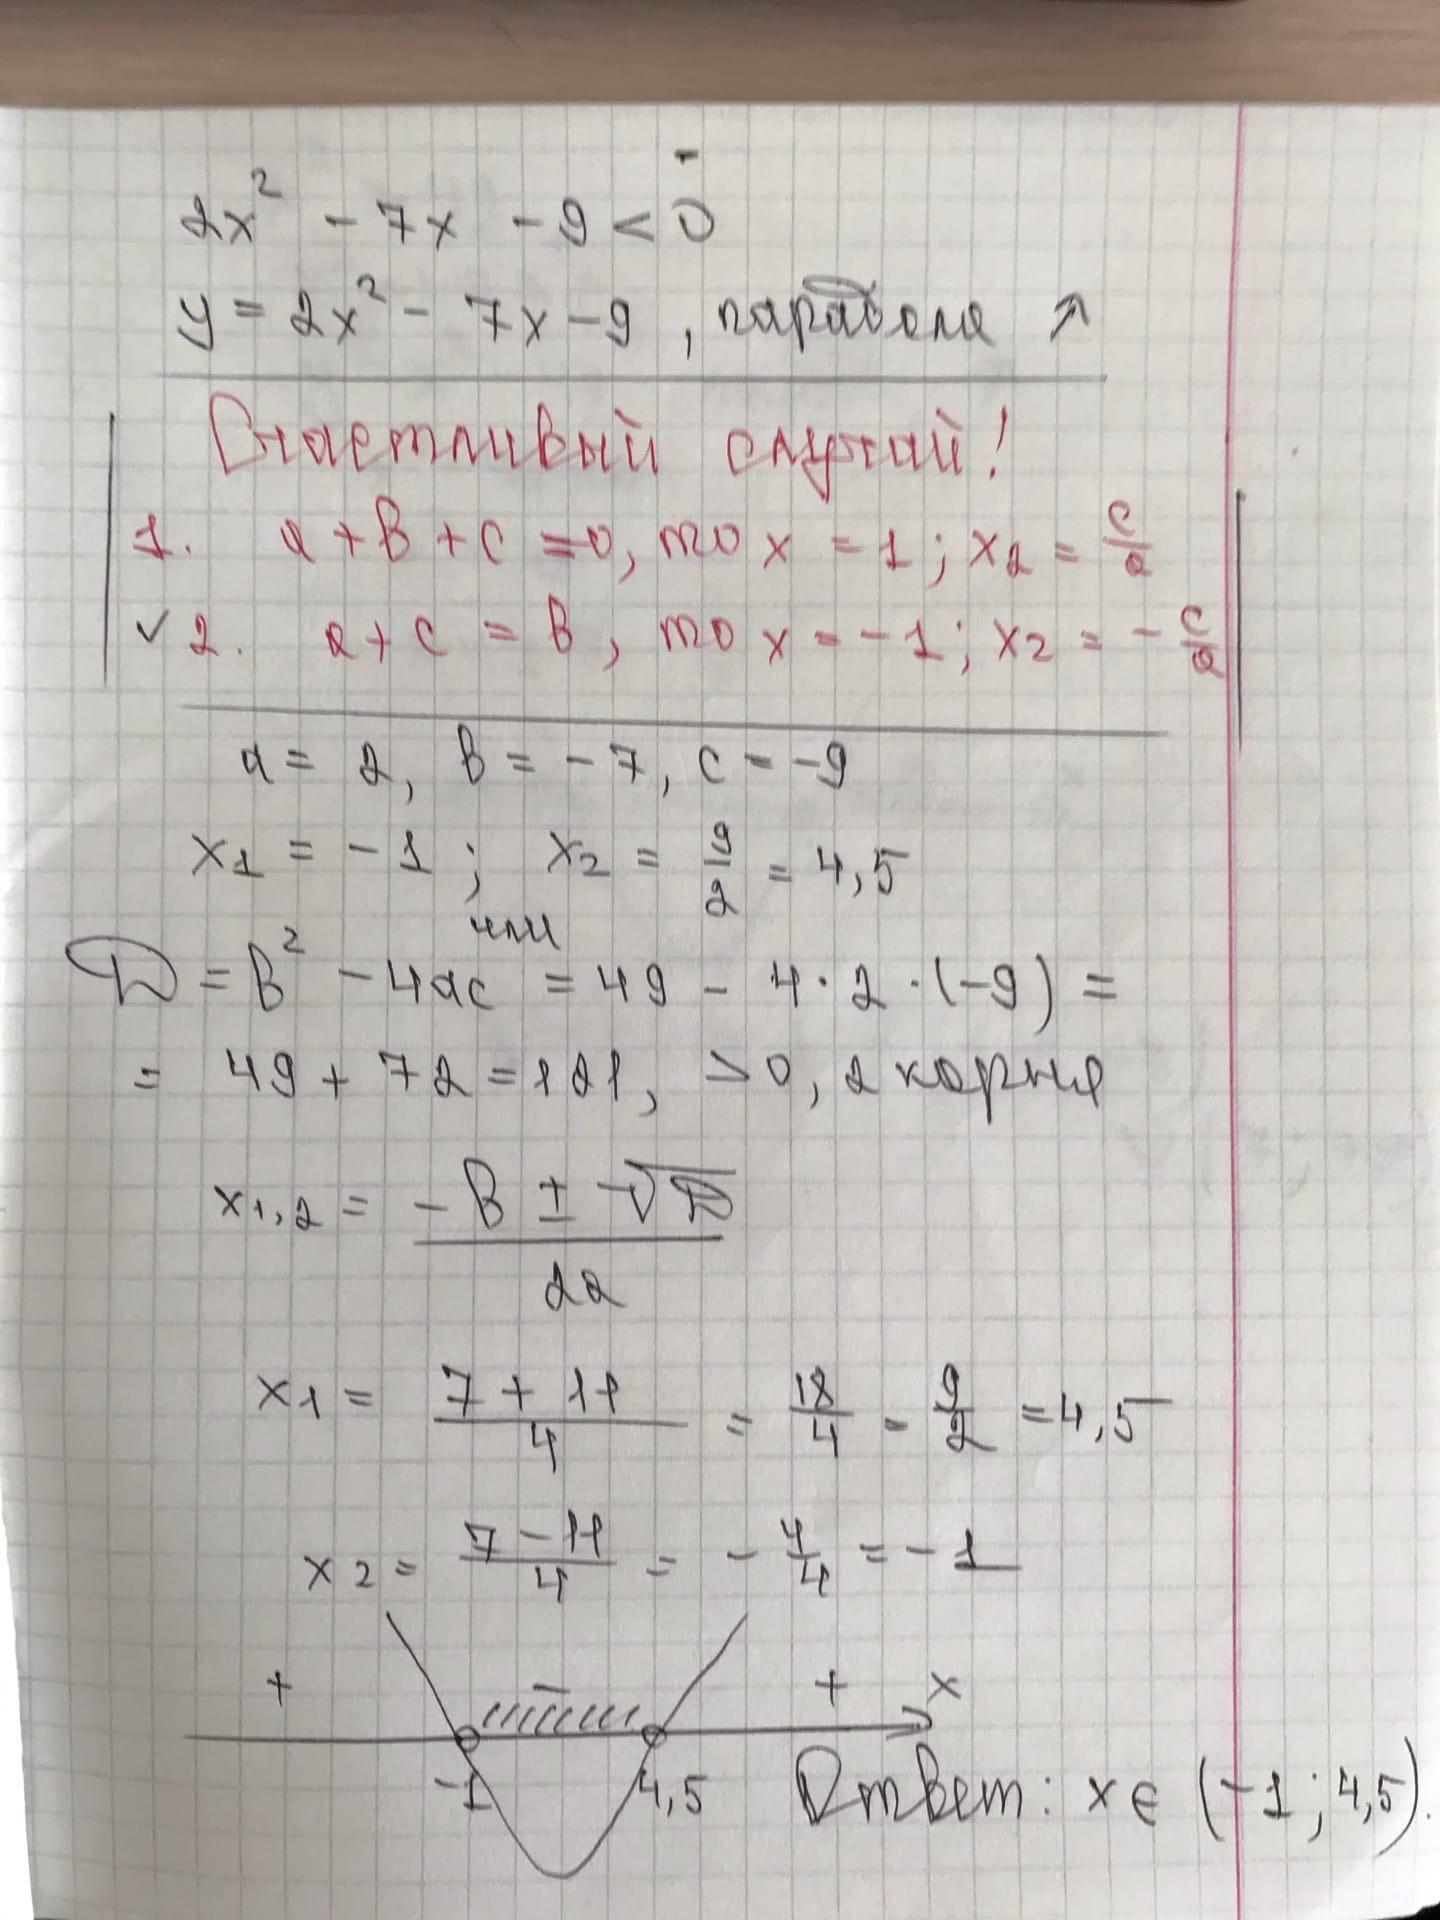 2x² - 7x - 9 < 0
y = 2x² - 7x - 9, парабола ↗
Счастливый случай!
1. a + b + c = 0, то x = 1; x₂ = c/a
✓ 2. a + c = b, то x = -1; x₂ = - c/a
a = 2, b = -7, c = -9
x₁ = -1; x₂ = 9/2 = 4,5
или
D = b² - 4ac = 49 - 4·2·(-9) =
= 49 + 72 = 121, > 0, 2 корня
x₁,₂ = (-b ± √D)/2a
x₁ = (7 + 11)/4 = 18/4 = 9/2 = 4,5
x₂ = (7 - 11)/4 = - 4/4 = -1
+ - + x
-1 4,5 Ответ: x ∈ (-1; 4,5).